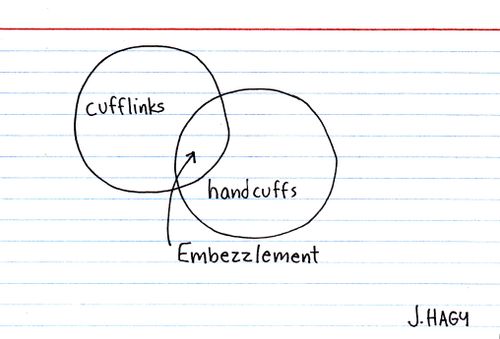 cufflinks
handcuffs
Embezzlement
J. HAGY